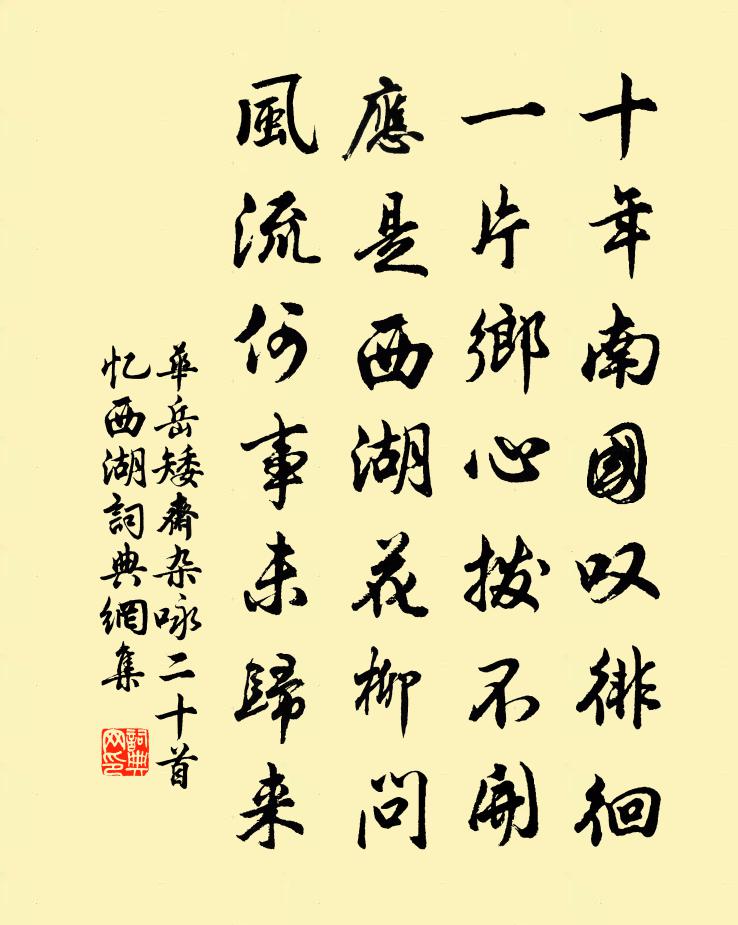 十年南國叹徘徊
一片鄉心拨不開
應是西湖花柳問
風流何事未歸来
華岳矮齋杂咏二十首
忆西湖詞典網集
詞典
网印